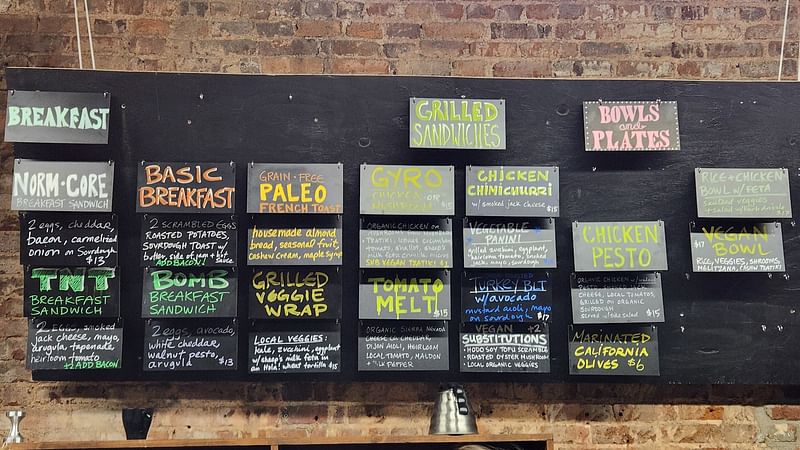 BREAKFAST
NORM-CORE
BREAKFAST SANDWICH
2 eggs, cheddar,
bacon, carmelized
onion on Sourdough
$13
TNT
BREAKFAST
SANDWICH
2 EGGS, smoked
jack cheese, mayo,
arugula, tapenade,
heirloom tomato
+2 ADD BACON
BASIC
BREAKFAST
2 SCRAMBLED EGGS
ROASTED POTATOES,
SOURDOUGH TOAST w/
butter, side of
ADD BACON
BOMB
BREAKFAST
SANDWICH
2 eggs, avocado,
white cheddar,
walnut pesto,
arugula $13
GRAIN-FREE
PALEO
FRENCH TOAST
housemade almond
bread, seasonal fruit,
cashew cream, maple syrup
GRILLED
VEGGIE
WRAP
LOCAL VEGGIES:
kale, zucchini, eggplant
w/ sheep's milk feta in
wheat tortilla $15
GRILLED
SANDWICHES
GYRO
CHICKEN OR
MUSHROOM
ORGANIC CHICKEN or
SUB VEGAN TZATIKI
TOMATO
MELT
$15
ORGANIC SIERRA NEVADA
CHEESE or CHEDDAR,
DIJON AIOLI, HEIRLOOM
LOCAL TOMATO, MALDON
PEPPER
CHICKEN
CHIMICHURRI
w/ smoked jack cheese $15
VEGETABLE
PANINI
grilled zucchini, eggplant,
heirloom tomato, smoked
jack, mayo, sourdough
TURKEY BLT
w/ avocado
mustard aioli, mayo
on sourdough $17
VEGAN +2
SUBSTITUTIONS
• HODO SOY TOFU SCRAMBLE
• ROASTED OYSTER MUSHROOM
• LOCAL ORGANIC VEGGIES
BOWLS
and
PLATES
CHICKEN
PESTO
ORGANIC CHICKEN
CHEESE, LOCAL TOMATOS,
GRILLED ON ORGANIC
SOURDOUGH
$15
MARINATED
CALIFORNIA
OLIVES $6
RICE + CHICKEN
BOWL w/ FETA
VEGAN
$17 BOWL
RICE, VEGGIES, SHROOMS,